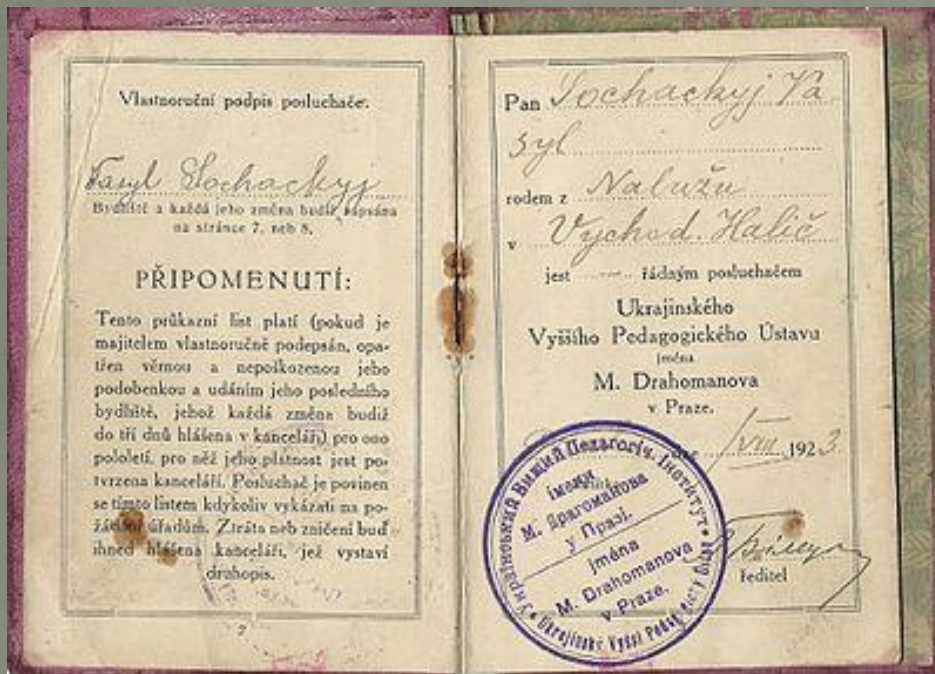 Vlastnoruční podpis posluchače:
Vasyl Sochackyj
Bydliště a každá jeho změna budiž zapsána
na stránce 7. neb 8.
PŘIPOMENUTÍ:
Tento průkazní list platí (pokud je
majitelem vlastnoručně podepsán, opa-
třen věrnou a nepoškozenou jeho
podobenkou a udáním jeho posledního
bydliště, jehož každá změna budiž
do tří dnů hlášena v kanceláři) pro ono
pololetí, pro něž jeho platnost jest po-
tvrzena kanceláří. Posluchač je povinen
se tímto listem kdykoliv vykázati na po-
žádání úřadům. Ztráta neb zničení buď
ihned hlášena kanceláři, jež vystaví
druhopis.
Pan Sochackyj Va
syl
rodem z Nalužu
v Vychod. Halič
jest řádným posluchačem
Ukrajinského
Vyššího Pedagogického Ústavu
jména
M. Drahomanova
v Praze.
VIII 1923
ředitel
Український Вищий Педагогіч. Інститут
імени
М. Драгоманова
у Празі.
jména
M. Drahomanova
v Praze.
Ukrajinský Vyšší